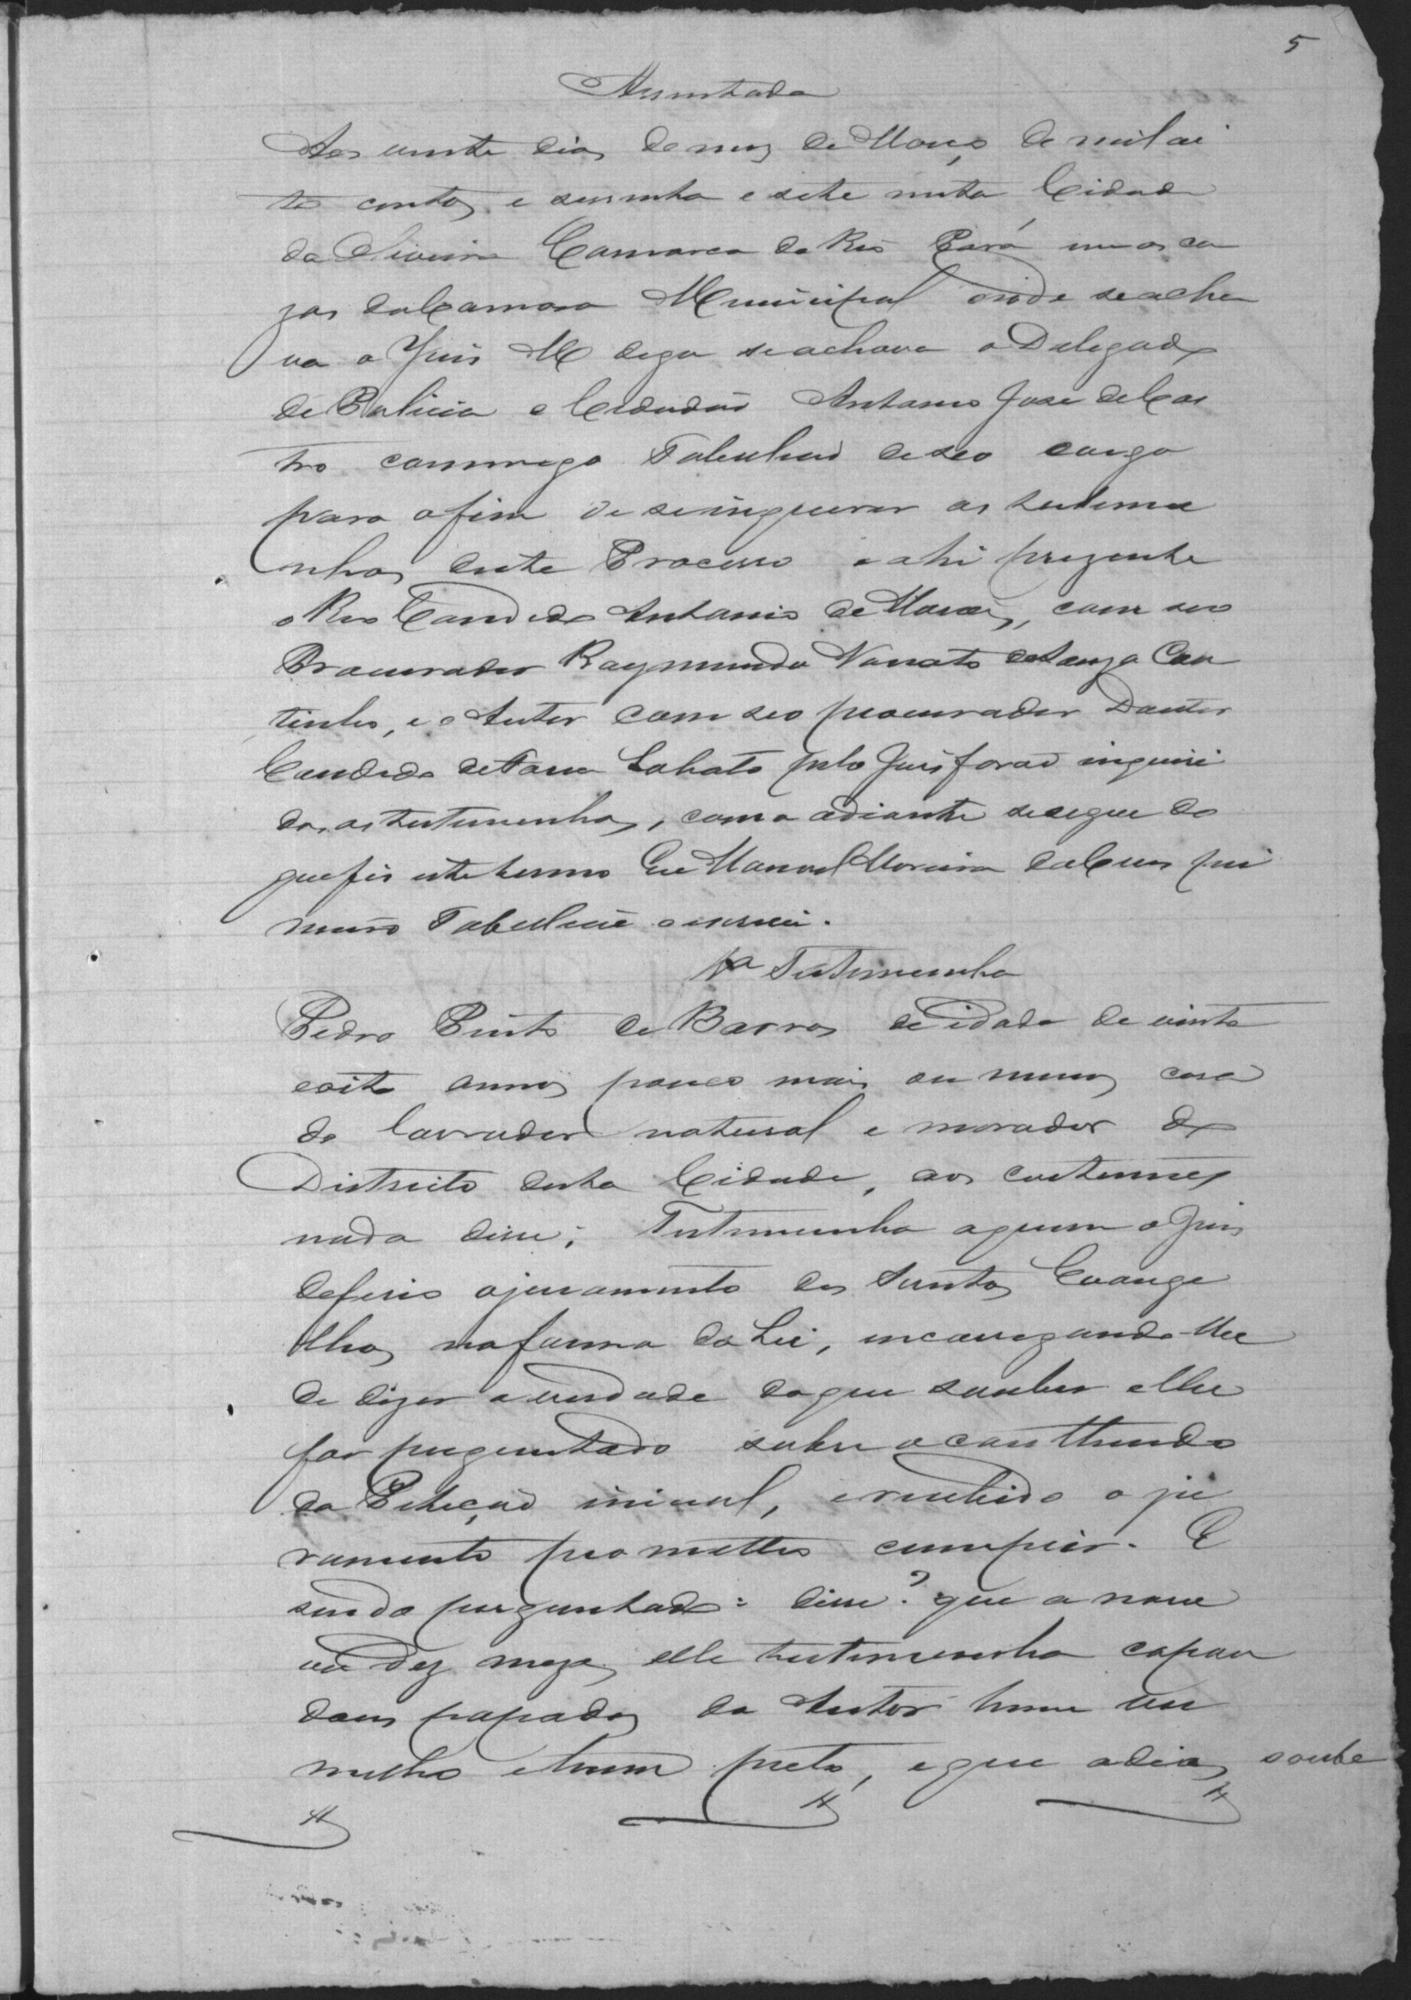 5
Assentada
Aos vinte dias do mez de Março de mil oi
to centos e secenta e sete nesta Cidade
da Oliveira Comarca do Rio Pará em as ca
zas da Camara Municipal onde se acha
va o Juis M digo se achava o Delegado
de Policia o Cidadão Antonio Jose de Cas
tro commigo Tabelliaõ de seo cargo
para o fim de se inquerir as testemu
nhas deste Processo e ahi prezente
o Reo Candido Antonio de Moraes, com seo
Procurador Raymundo Nonato de Souza Cou
tinho, e o Autor com seo procurador Doutor
Candido de Faria Lobato pelo Juis foraõ inquiri
das as testemunhas, como adiante se segue do
que fis este termo Eu Manoel Moreira da Cruz pri
meiro Tabelliaõ o escrevi.
1ª Testemunha
Pedro Pinto de Barros de idade de vinte
e oito annos pouco mais ou menos casa
do lavrador natural e morador do
Districto desta Cidade, aos custumes
nada disse; Testemunha a quem o Juis
deferio o juramento dos Santos Evange
lhos na forma da Lei, encarregando-lhe
de dizer a verdade do que souber e lhe
for preguntado sobre o conthendo
da Petiçaõ inicial, e recebido o ju
ramento prometteo cumprir. E
sendo preguntado: disse: que a nove
ou dez mezes elle testemunha capou
dous capados do Autor hum ver
melho e hum preto, e que a dias soube